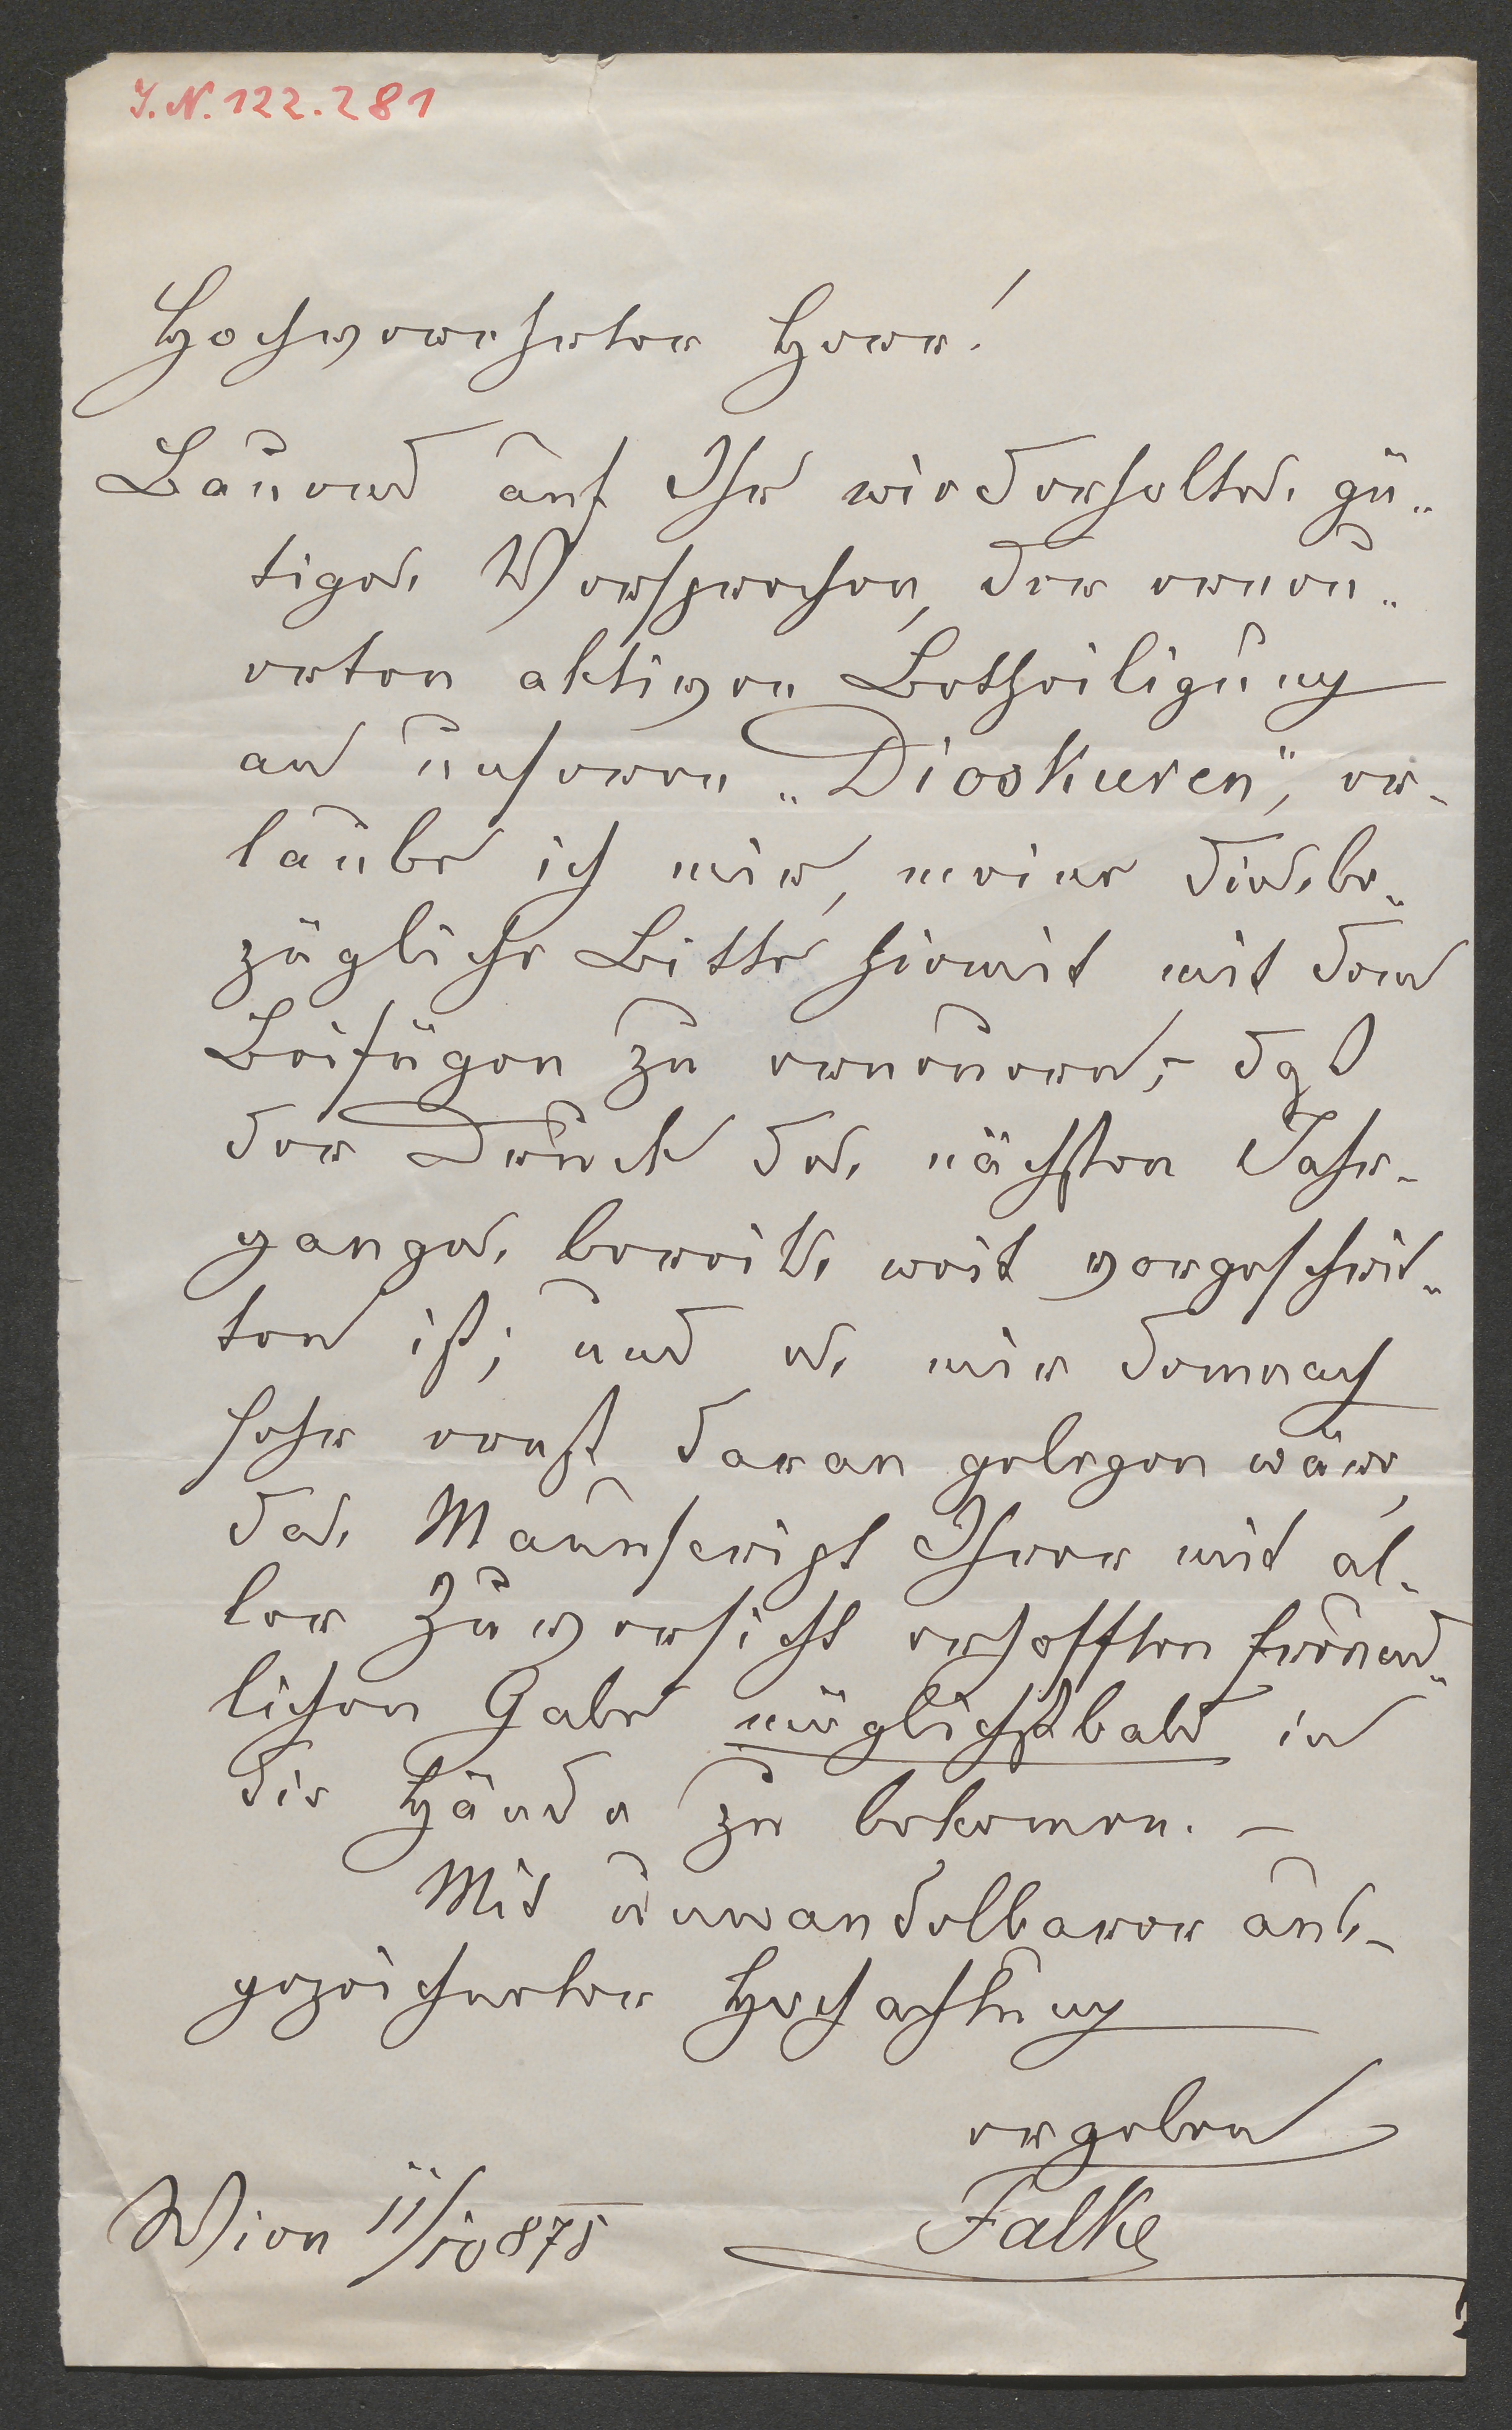 I.N. 122.281
Hochverehrter Herr!
Bauend auf Ihr wiederholtes gü-
tiges Versprechen, der erneu-
erten aktiven Betheiligung
an unseren „Dioskuren", er-
laube ich mir, meine diesbe-
zügliche Bitte hiemit mit dem
Beifügen zu erneuern, – daß
der Druck des nächsten Jahr-
ganges bereits weit vorgeschrit-
ten ist; und es mir demnach
sehr ernst daran gelegen wäre,
das Manuscript Ihrer mit al-
ler Zuversicht erhofften freund-
lichen Gabe möglichst bald in
die Hände zu bekommen. –
Mit unwandelbarer aus-
gezeichneter Hochachtung
ergeben
Falke
Wien 11/10 875